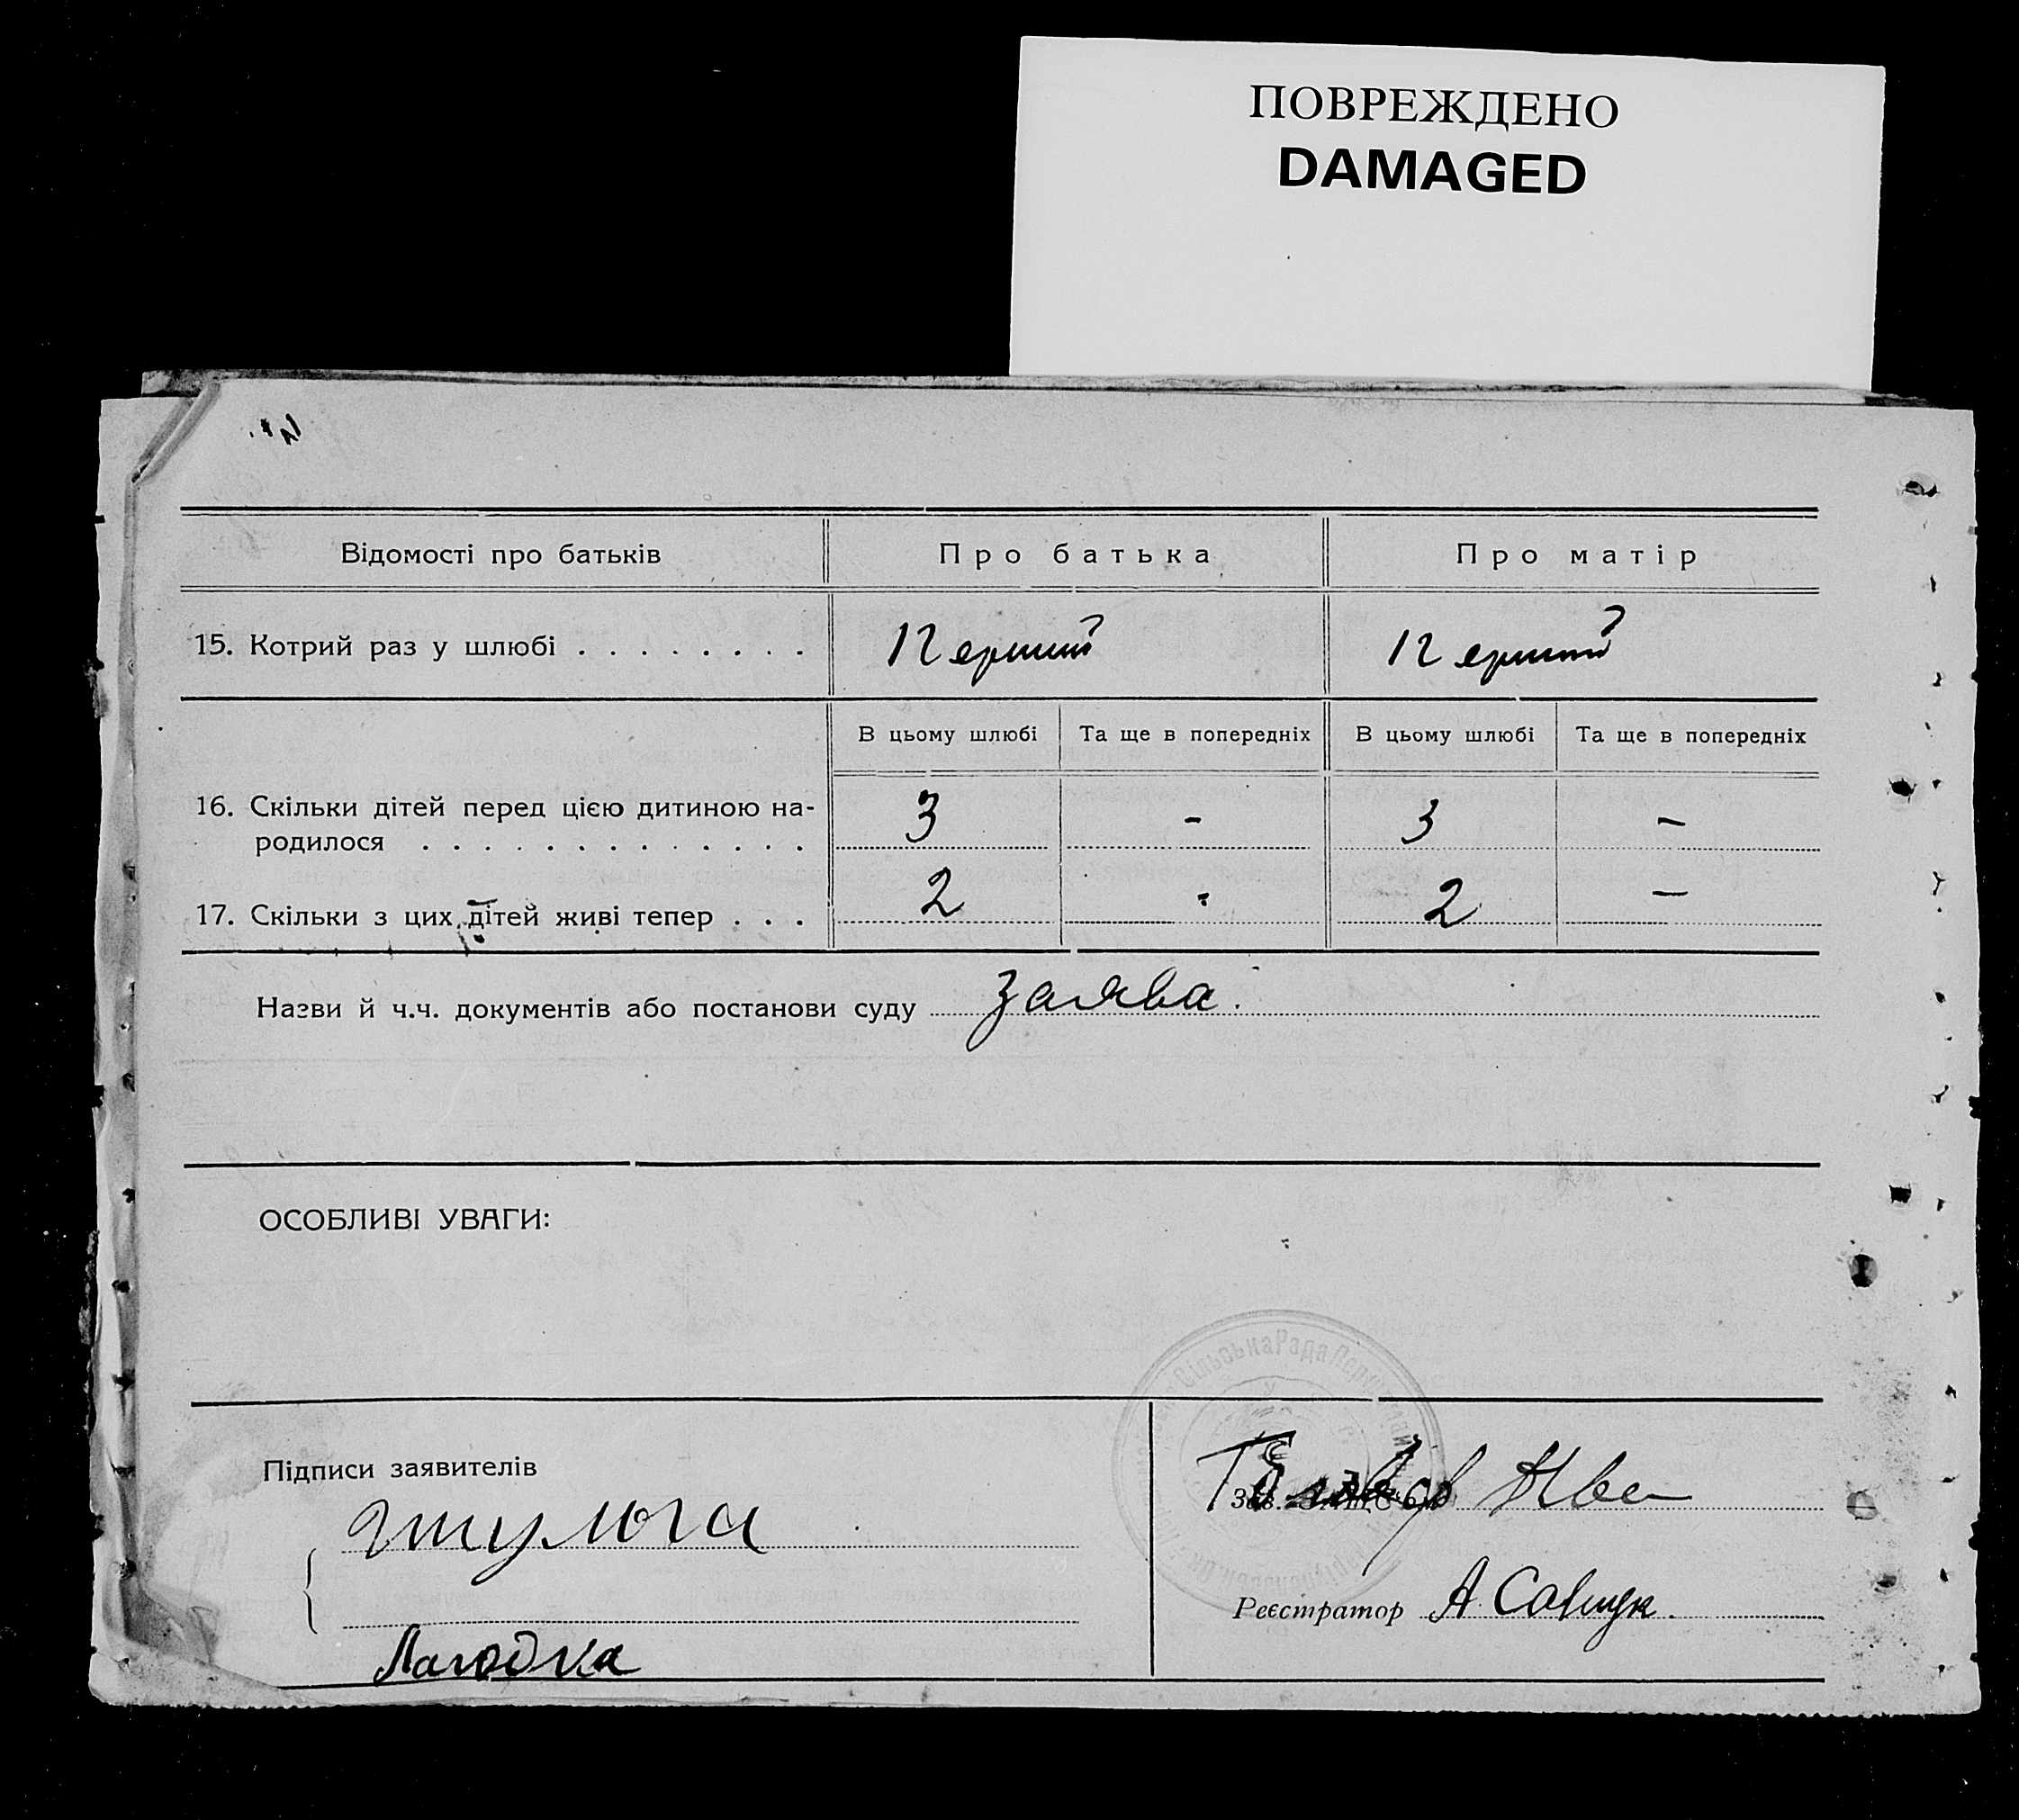 ПОВРЕЖДЕНО
DAMAGED
Відомості про батьків
Про батька
Про матір
15. Котрий раз у шлюбі
Перший
Перший
В цьому шлюбі
Та ще в попередніх
В цьому шлюбі
Та ще в попередніх
16. Скільки дітей перед цією дитиною на-
родилося
3
-
3
-
17. Скільки з цих дітей живі тепер . . .
2
-
2
-
Назви й ч.ч. документів або постанови суду заява.
ОСОБЛИВІ УВАГИ:
Сільська Рада
Підписи заявителів
Лагодка
Реєстратор А Савчук